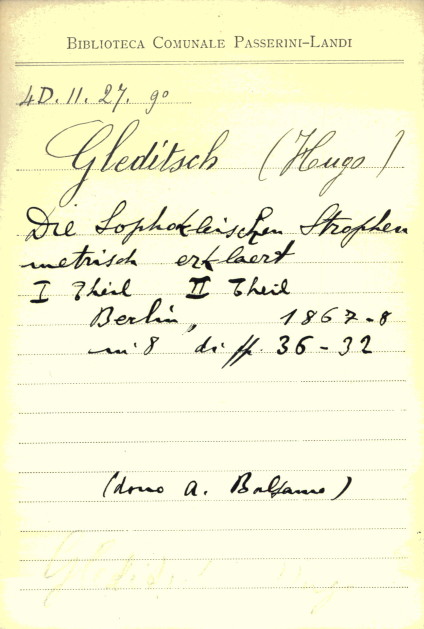 BIBLIOTECA COMUNALE PASSERINI-LANDI
4D. II. 27. 9º
Gleditsch (Hugo)
Die Sophokleischen Strophen
metrisch erklaert
I Theil II Theil
Berlin, 1867-8
in 8 di pp. 36-32
(dono A. Balsamo)